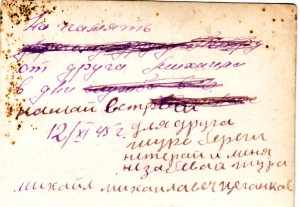 На память
от друга Михаила
в дни
нашей встречи
12/XI 45 г. для друга
Шуре береги
не теряй и меня
незабевай Шура
михаил михаилавеч